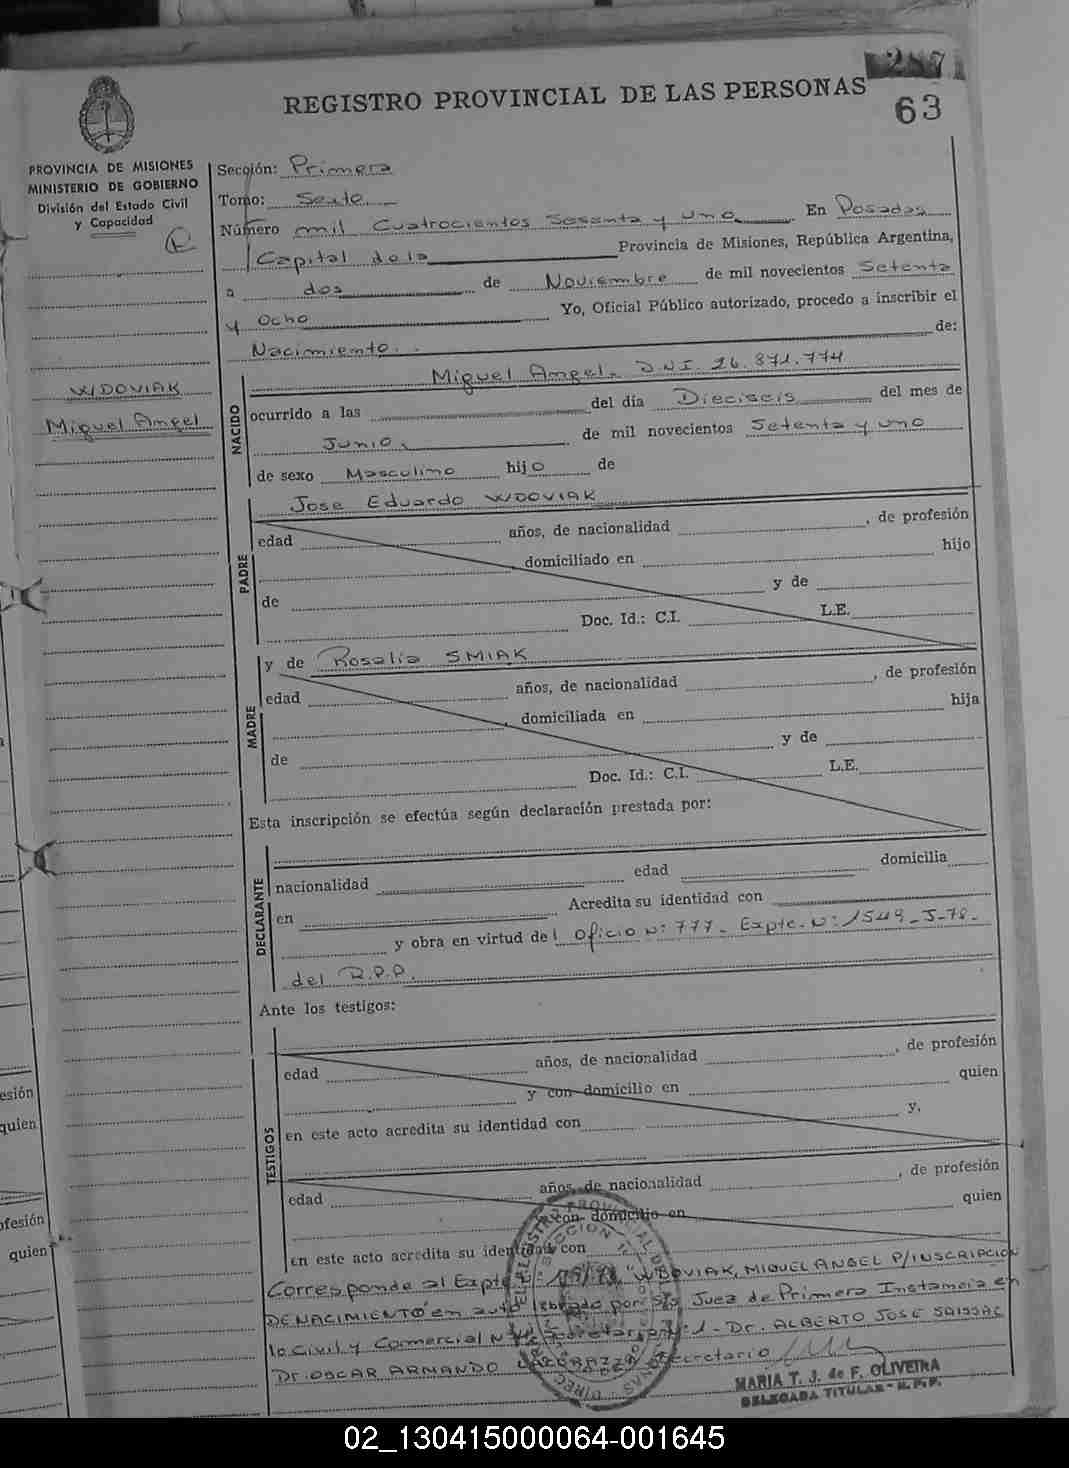 287
63
REGISTRO PROVINCIAL DE LAS PERSONAS
PROVINCIA DE MISIONES
MINISTERIO DE GOBIERNO
División del Estado Civil
y Capacidad
WDOVIAK
Miguel Angel
Sección: Primera
Tomo: Sexto
Número mil Cuatrocientos Sesenta y uno En Posadas
Capital de la Provincia de Misiones, República Argentina,
a dos de Noviembre de mil novecientos Setenta
y Ocho Yo, Oficial Público autorizado, procedo a inscribir el
Nacimiento. de:
NACIDO
Miguel Angel. D.N.I. 26.871.774
ocurrido a las del día Dieciseis del mes de
Junio, de mil novecientos Setenta y uno
de sexo Masculino hijo de
PADRE
Jose Eduardo WDOVIAK
edad años, de nacionalidad , de profesión
domiciliado en hijo
de y de
Doc. Id.: C.I. L.E.
MADRE
y de Rosalia SMIAK
edad años, de nacionalidad , de profesión
, domiciliada en hija
de y de
Doc. Id.: C.I. L.E.
Esta inscripción se efectúa según declaración prestada por:
DECLARANTE
nacionalidad edad domicilia
en Acredita su identidad con
y obra en virtud del Oficio N: 777. Expte. N: 1549-J-78-
del R.P.P.
Ante los testigos:
TESTIGOS
edad años, de nacionalidad , de profesión
y con domicilio en quien
en este acto acredita su identidad con y,
edad años, de nacionalidad , de profesión
y con domicilio en quien
en este acto acredita su identidad con
Corresponde al Expte "WDOVIAK, MIGUEL ANGEL P/INSCRIPCION
DE NACIMIENTO" en auto librado por Juez de Primera Instancia en
lo Civil y Comercial Dr. ALBERTO JOSE SAISSAC
Dr. OSCAR ARMANDO Secretario
MARIA T. J. de F. OLIVEIRA
DELEGADA TITULAR - R.P.P.
esión
quien
ofesión
quien
02_130415000064-001645